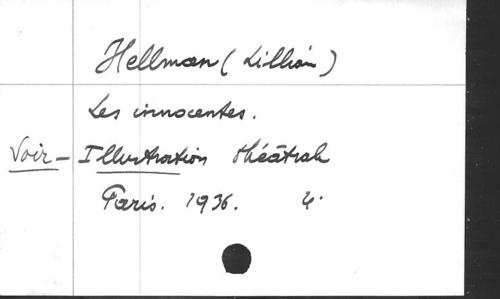 Hellman (Lillian)
Les innocentes.
Voir - Illustration théâtrale
Paris. 1936. 4.